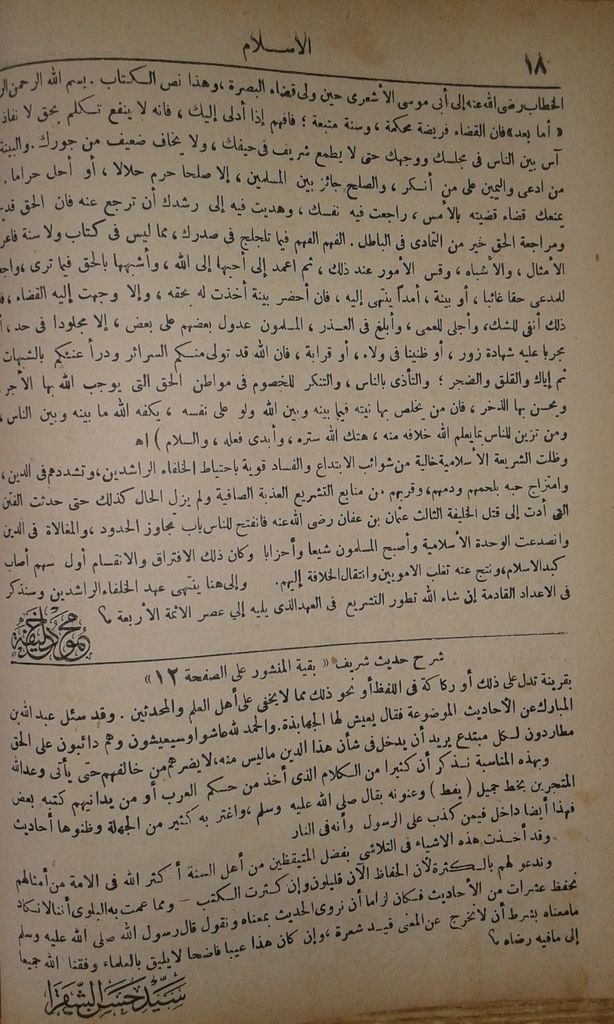 ١٨
الاسلام
الخطاب رضى الله عنه إلى أبى موسى الأشعرى حين ولى قضاء البصرة، وهذا نص الكتاب. بسم الله الرحمن
« أما بعد» فان القضاء فريضة محكمة، وسنة متبعة؛ فافهم إذا أدلى إليك، فانه لا ينفع تكلم بحق لا نفاذ
آس بين الناس فى مجلسك ووجهك حتى لا يطمع شريف فى حيفك، ولا يخاف ضعيف من جورك. والبينة
من ادعى واليمين على من أنكر، والصلح جائز بين المسلمين، إلا صلحا حرم حلالا، أو أحل حراما.
يمنعك قضاء قضيته بالأمس، راجعت فيه نفسك، وهديت فيه إلى رشدك أن ترجع عنه فان الحق
ومراجعة الحق خير من التمادى فى الباطل. الفهم الفهم فيما تلجلج فى صدرك، مما ليس فى كتاب ولا سنة
الأمثال، والأشباه، وقس الأمور عند ذلك، ثم اعمد إلى أحبها إلى الله، وأشبهها بالحق فيما ترى،
للمدعى حقا غائبا، أو بينة، أمدا ينتهى إليه، فان أحضر بينة أخذت له بحقه، وإلا وجهت إليه القضاء،
ذلك أنفى للشك، وأجلى للعمى، وأبلغ فى العذر، المسلمون عدول بعضهم على بعض، إلا مجلودا فى حد،
مجربا عليه شهادة زور، أو ظنينا فى ولاء، أو قرابة، فان الله قد تولى منكم السرائر ودرأ عنكم بالشبهات
ثم إياك والقلق والضجر؛ والتأذى بالناس، والتنكر للخصوم فى مواطن الحق التى يوجب الله بها الأجر
ويحسن بها الذخر، فان من يخلص بها نيته فيما بينه وبين الله ولو على نفسه، يكفه الله ما بينه وبين الناس،
ومن تزين للناس بما يعلم الله خلافه منه، هتك الله ستره، وأبدى فعله، والسلام ) اهـ
وظلت الشريعة الأسلامية خالية من شوائب الابتداع والفساد قوية باحتياط الخلفاء الراشدين، وتشددهم فى الدين،
وامتزاج حبه بلحمهم ودمهم، وقربهم من منابع التشريع العذبة الصافية ولم يزل الحال كذلك حتى حدثت الفتن
التى أدت إلى قتل الخليفة الثالث عثمان بن عفان رضى الله عنه فانفتح للناس باب مجاوز الحدود، والمغالاة فى الدين
وانصدعت الوحدة الأسلامية وأصبح المسلمون شيعا وأحزابا وكان ذلك الافتراق والانقسام أول سهم أصاب
كبد الاسلام، ونتج عنه تغلب الامويين وانتقال الخلافة إليهم. وإلى هنا ينتهى عهد الخلفاء الراشدين وسنذكر
فى الاعداد القادمة إن شاء الله تطور التشريع فى العهد الذى يليه إلى عصر الأئمة الأربعة ؟
شرح حديث شريف « بقية المنشور على الصفحة ١٢»
بقرينة تدل على ذلك أو ركاكة فى اللفظ أو نحو ذلك مما لا يخفى على أهل العلم والمحدثين. وقد سئل عبد الله بن
المبارك عن الأحاديث الموضوعة فقال يعيش لها الجهابذة. والحمد لله عاشوا وسيعيشون وهم دائبون على الحق
مطاردون لكل مبتدع يريد أن يدخل فى شأن هذا الدين ما ليس منه، لا يضرهم من خالفهم حتى يأتى وعد الله
وبهذه المناسبة نذكر أن كثيرا من الكلام الذى أخذ من حكم العرب أو من يدانيهم كتبه بعض
المتجرين بخط جميل ( يفط ) وعنونه بقال صلى الله عليه وسلم، واغتر به كثير من الجهلة وظنوها أحاديث
فهذا أيضا داخل فيمن كذب على الرسول وأنه فى النار
وقد أخذت هذه الاشياء فى التلاشى بفضل المتيقظين من أهل السنة أكثر الله فى الامة من أمثالهم
وندعو لهم بالكثرة لأن الحفاظ الآن قليلون وإن كثرت الكتب - ومما عمت به البلوى أننا لا نكاد
نحفظ عشرات من الأحاديث فكان لزاما أن نروى الحديث بمعناه ونقول قال رسول الله صلى الله عليه وسلم
ما معناه بشرط أن لا نخرج عن المعنى قيد شعرة، وإن كان هذا عيبا فاضحا لا يليق بالعلماء وفقنا الله جميعا
إلى ما فيه رضاه ؟
سيد حسن الشقرا